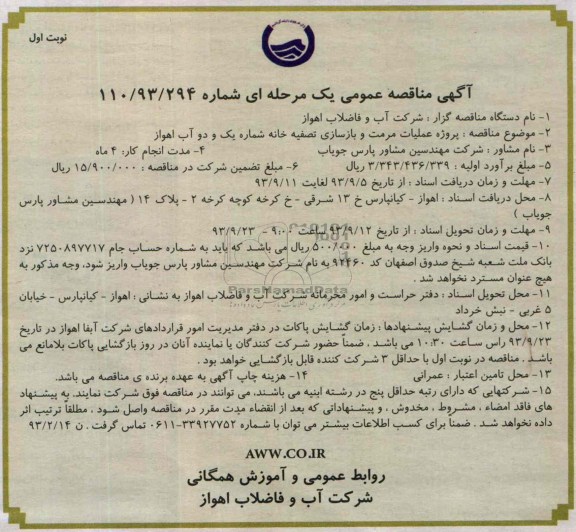 نوبت اول
آگهی مناقصه عمومی یک مرحله ای شماره ۱۱۰/۹۳/۲۹۴
۱- نام دستگاه مناقصه گزار : شرکت آب و فاضلاب اهواز
۲- موضوع مناقصه : پروژه عملیات مرمت و بازسازی تصفیه خانه شماره یک و دو آب اهواز
۳- نام مشاور : شرکت مهندسین مشاور پارس جویاب ۴- مدت انجام کار: ۴ ماه
۵- مبلغ برآورد اولیه : ۳/۳۴۳/۴۳۶/۳۳۹ ریال ۶- مبلغ تضمین شرکت در مناقصه : ۱۵/۹۰۰/۰۰۰ ریال
۷- مهلت و زمان دریافت اسناد : از تاریخ ۹۳/۹/۵ لغایت ۹۳/۹/۱۱
۸- محل دریافت اسناد : اهواز - کیانپارس خ ۱۳ شرقی - خ کرخه کوچه کرخه ۲ - پلاک ۱۴ ( مهندسین مشاور پارس
جویاب )
۹- مهلت و زمان تحویل اسناد : از تاریخ ۹۳/۹/۱۲ لغایت ساعت ۹:۰۰ - ۹۳/۹/۲۳
۱۰- قیمت اسناد و نحوه واریز وجه به مبلغ ۵۰۰/۰۰۰ ریال می باشد که باید به شماره حساب جام ۷۲۵۰۸۹۷۷۱۷ نزد
بانک ملت شعبه شیخ صدوق اصفهان کد ۹۴۴۶۰ به نام شرکت مهندسین مشاور پارس جویاب واریز شود، وجه مذکور به
هیچ عنوان مسترد نخواهد شد .
ParsNamadData
۱۱- محل تحویل اسناد : دفتر حراست و امور محرمانه شرکت آب و فاضلاب اهواز به نشانی : اهواز - کیانپارس - خیابان
۵ غربی - نبش خرداد
۱۲- محل و زمان گشایش پیشنهادها : زمان گشایش پاکات در دفتر مدیریت امور قراردادهای شرکت آبفا اهواز در تاریخ
۹۳/۹/۲۳ راس ساعت ۱۰:۳۰ می باشد . ضمناً حضور شرکت کنندگان یا نماینده آنان در روز بازگشایی پاکات بلامانع می
باشد . مناقصه در نوبت اول با حداقل ۳ شرکت کننده قابل بازگشایی خواهد بود .
۱۳- محل تامین اعتبار : عمرانی ۱۴- هزینه چاپ آگهی به عهده برنده ی مناقصه می باشد.
۱۵- شرکتهایی که دارای رتبه حداقل پنج در رشته ابنیه می باشند، می توانند در مناقصه فوق شرکت نمایند. به پیشنهاد
های فاقد امضاء ، مشروط ، مخدوش ، و پیشنهاداتی که بعد از انقضاء مدت مقرر در مناقصه واصل شود ، مطلقاً ترتیب اثر
داده نخواهد شد . ضمناً برای کسب اطلاعات بیشتر می توان با شماره ۳۳۹۲۷۷۵۲-۰۶۱۱ تماس گرفت . ن ۹۳/۲/۱۴
AWW.CO.IR
روابط عمومی و آموزش همگانی
شرکت آب و فاضلاب اهواز